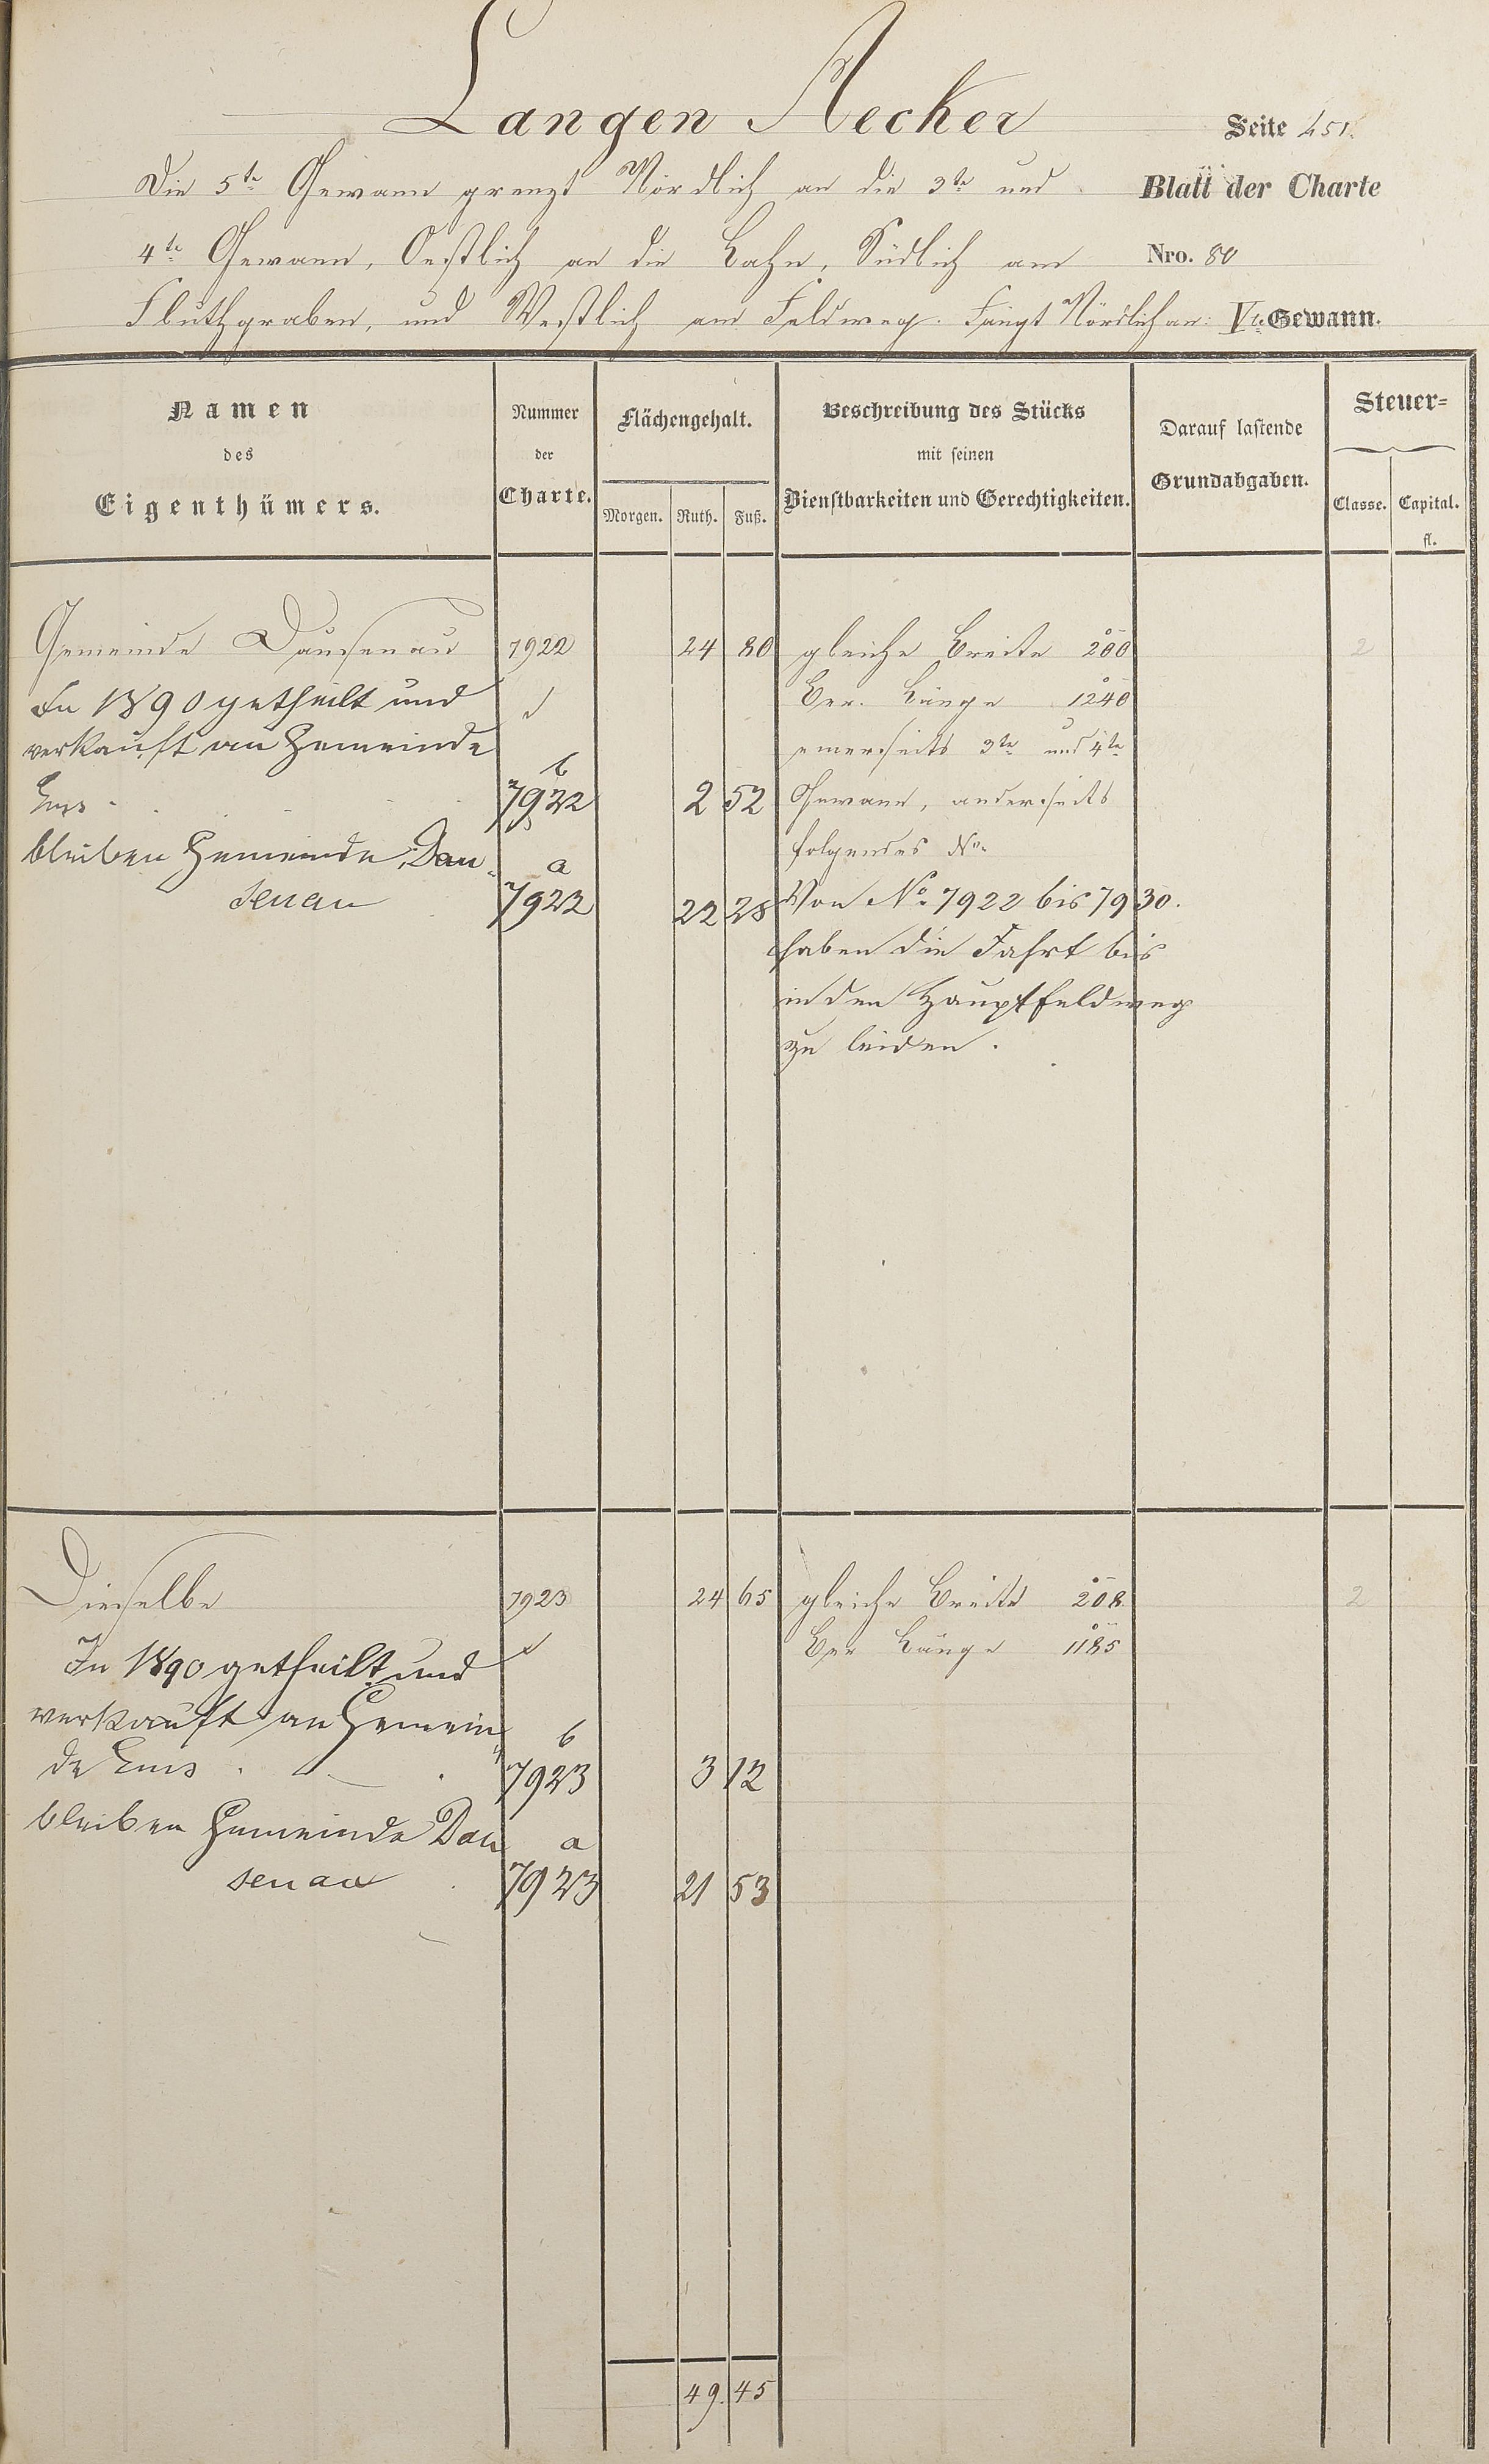 Langen Aecker
Seite 451.
Die 5te Gewann grenzt Nördlich an die 3te und
Blatt der Charte
4te Gewann, Oestlich an die Lahn, Südlich am
Nro. 80
Fluthgraben, und Westlich am Feldweg. Fängt Nördlich an:
Vte Gewann.
Namen
des
Eigenthümers.
Nummer
der
Charte.
Flächengehalt.
Morgen. Ruth. Fuß.
Beschreibung des Stücks
mit seinen
Dienstbarkeiten und Gerechtigkeiten.
Darauf lastende
Grundabgaben.
Steuer=
Classe. Capital.
fl.
Gemeinde Dausenau 7922 24 80 gleiche Breite 200 2
In 1890 getheilt und Ber. Länge 1240
verkauft an Gemeinde einerseits 3te und 4te
Ems b 7922 2 52 Gewann, anderseits
bleiben Gemeinde Dau- folgendes No.
senau a 7922 22 28 Von No. 7922 bis 7930.
haben die Fahrt bis
in den Hauptfeldweg
zu leiden.
Dieselbe 7923 24 65 gleiche Breite 208 2
In 1890 getheilt und Ber Länge 1185
verkauft an Gemein-
de Ems b 7923 3 12
bleiben Gemeinde Dau
senau a 7923 21 53
49. 45